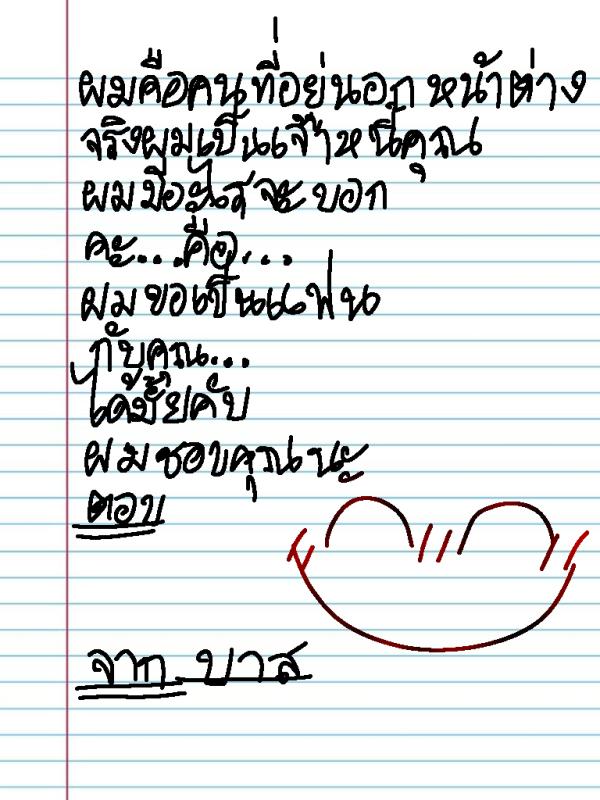 ผมคือคนที่อยู่นอกหน้าต่าง
จริงผมเป็นเจ้าหนี้คุณ
ผมมีอะไรจะบอก
คะ...คือ...
ผมขอเป็นแฟน
กับคุณ...
ได้มั้ยคับ
ผมชอบคุณนะ
ตอบ
จาก บาส